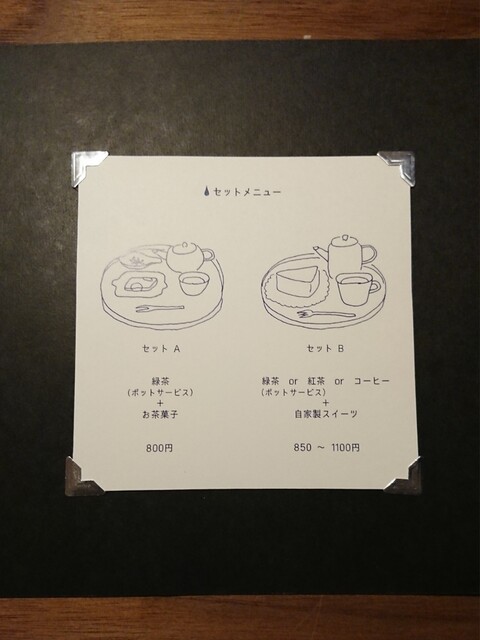 セットメニュー
セット A
緑茶
(ポットサービス)
+
お茶菓子
800円
セット B
緑茶 or 紅茶 or コーヒー
(ポットサービス)
+
自家製スイーツ
850 〜 1100円